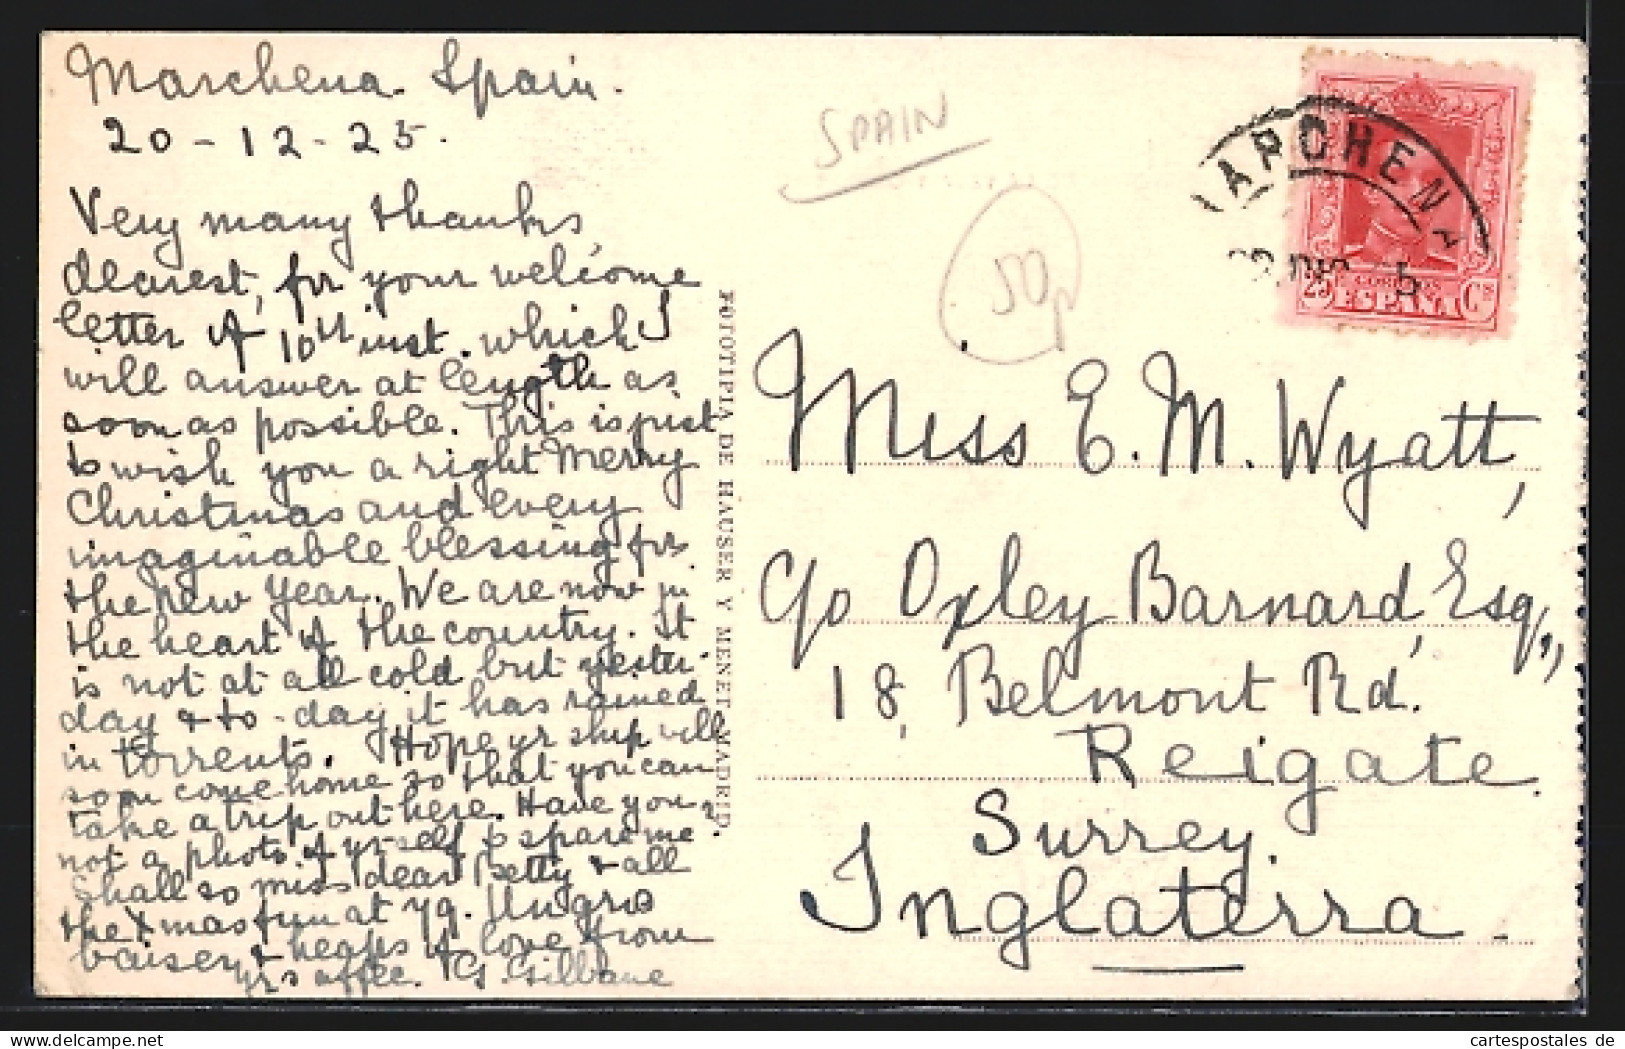 Marchena. Spain.
20-12-25.
Very many thanks
dearest, for your welcome
letter of 10th inst. which I
will answer at length as
soon as possible. This is just
to wish you a right Merry
Christmas and every
imaginable blessing for
the New Year. We are now in
the heart of the country. It
is not at all cold but yester-
day & to-day it has rained
in torrents. Hope yr ship will
soon come home so that you can
take a trip out here. Have you
not a photo. of yrself to spare me?
Shall so miss dear Betty & all
the Xmas fun at 79. Un gros
baiser & heaps of love from
yrs affec. G. Gilbane
FOTOTIPIA DE HAUSER Y MENET.-MADRID.
SPAIN
50p
MARCHENA
DIC 25
CORREOS
25 ESPAÑA Cs
Miss E. M. Wyatt,
c/o Oxley Barnard, Esq.,
18, Belmont Rd.
Reigate.
Surrey.
Inglaterra.
cartespostales de